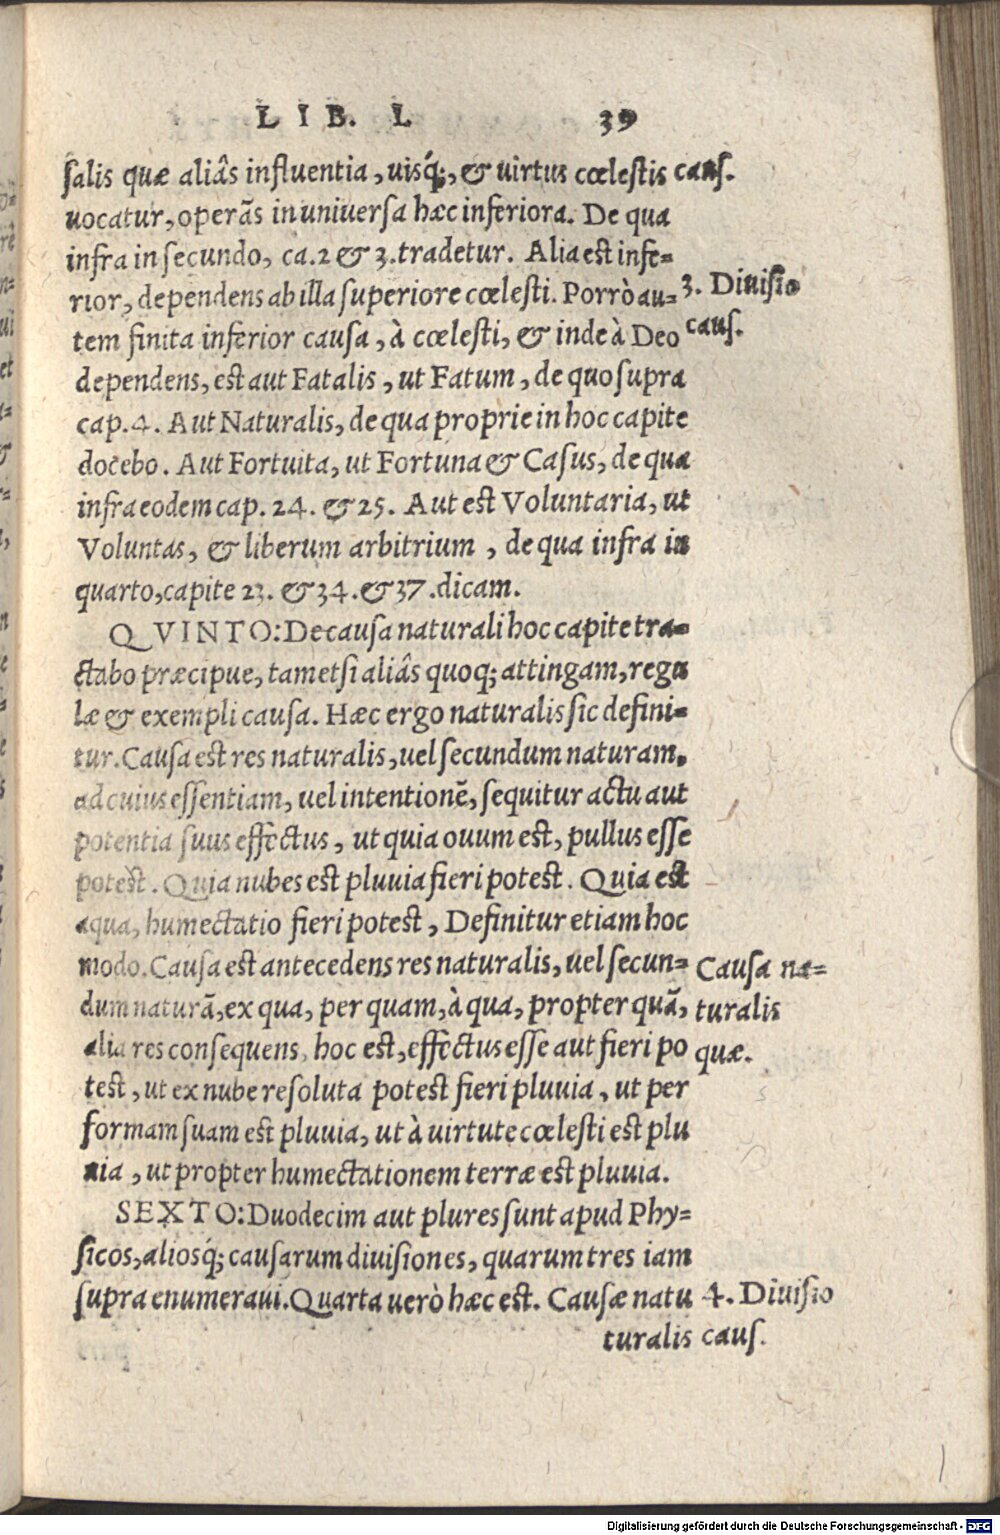 LIB. I. 39
salis quæ aliâs influentia, uisq́;, & uirtus cœlestis caus.
uocatur, operãs in uniuersa hæc inferiora. De qua
infra in secundo, ca. 2 & 3. tradetur. Alia est infe=
rior, dependens ab illa superiore cœlesti. Porrò au= 3. Diuisio
tem finita inferior causa, à cœlesti, & inde à Deo caus.
dependens, est aut Fatalis, ut Fatum, de quo supra
cap. 4. Aut Naturalis, de qua proprie in hoc capite
docebo. Aut Fortuita, ut Fortuna & Casus, de qua
infra eodem cap. 24. & 25. Aut est Voluntaria, ut
Voluntas, & liberum arbitrium, de qua infra in
quarto, capite 23. & 34. & 37. dicam.
QVINTO: De causa naturali hoc capite tra=
ctabo præcipue, tametsi aliâs quoq; attingam, regu
læ & exempli causa. Hæc ergo naturalis sic defini=
tur. Causa est res naturalis, uel secundum naturam,
ad cuius essentiam, uel intentionẽ, sequitur actu aut
potentia suus effectus, ut quia ouum est, pullus esse
potest. Quia nubes est pluuia fieri potest. Quia est
aqua, humectatio fieri potest, Definitur etiam hoc
modo. Causa est antecedens res naturalis, uel secun= Causa na=
dum naturã, ex qua, per quam, à qua, propter quã, turalis
alia res consequens, hoc est, effectus esse aut fieri po quæ.
test, ut ex nube resoluta potest fieri pluuia, ut per
formam suam est pluuia, ut à uirtute cœlesti est plu
uia, ut propter humectationem terræ est pluuia.
SEXTO: Duodecim aut plures sunt apud Phy=
sicos, aliosq́; causarum diuisiones, quarum tres iam
supra enumeraui. Quarta uerò hæc est. Causæ natu 4. Diuisio
turalis caus.
Digitalisierung gefördert durch die Deutsche Forschungsgemeinschaft - DFG